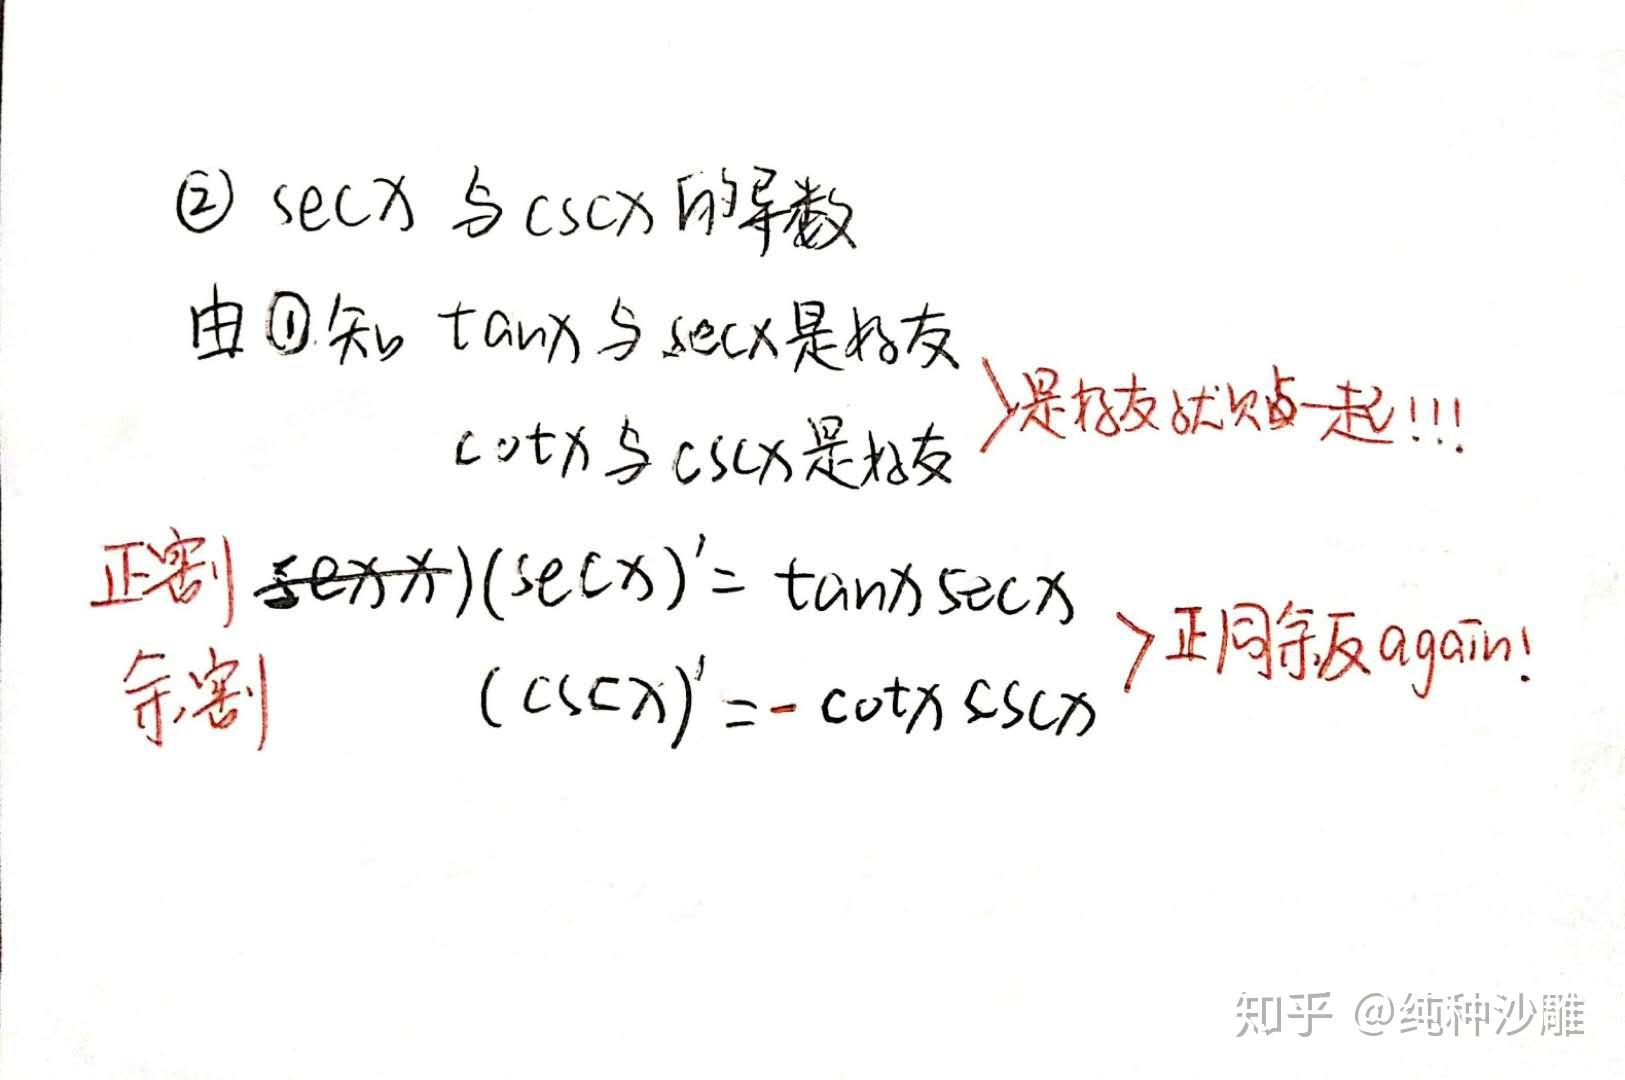 ② secx 与 cscx 的导数
由①知 tanx 与 secx 是好友
cotx 与 cscx 是好友
是好友就贞一起!!!
正割 (secx)' = tanx secx
余割 (cscx)' = - cotx cscx
正同余反 again!
知乎 @纯种沙雕